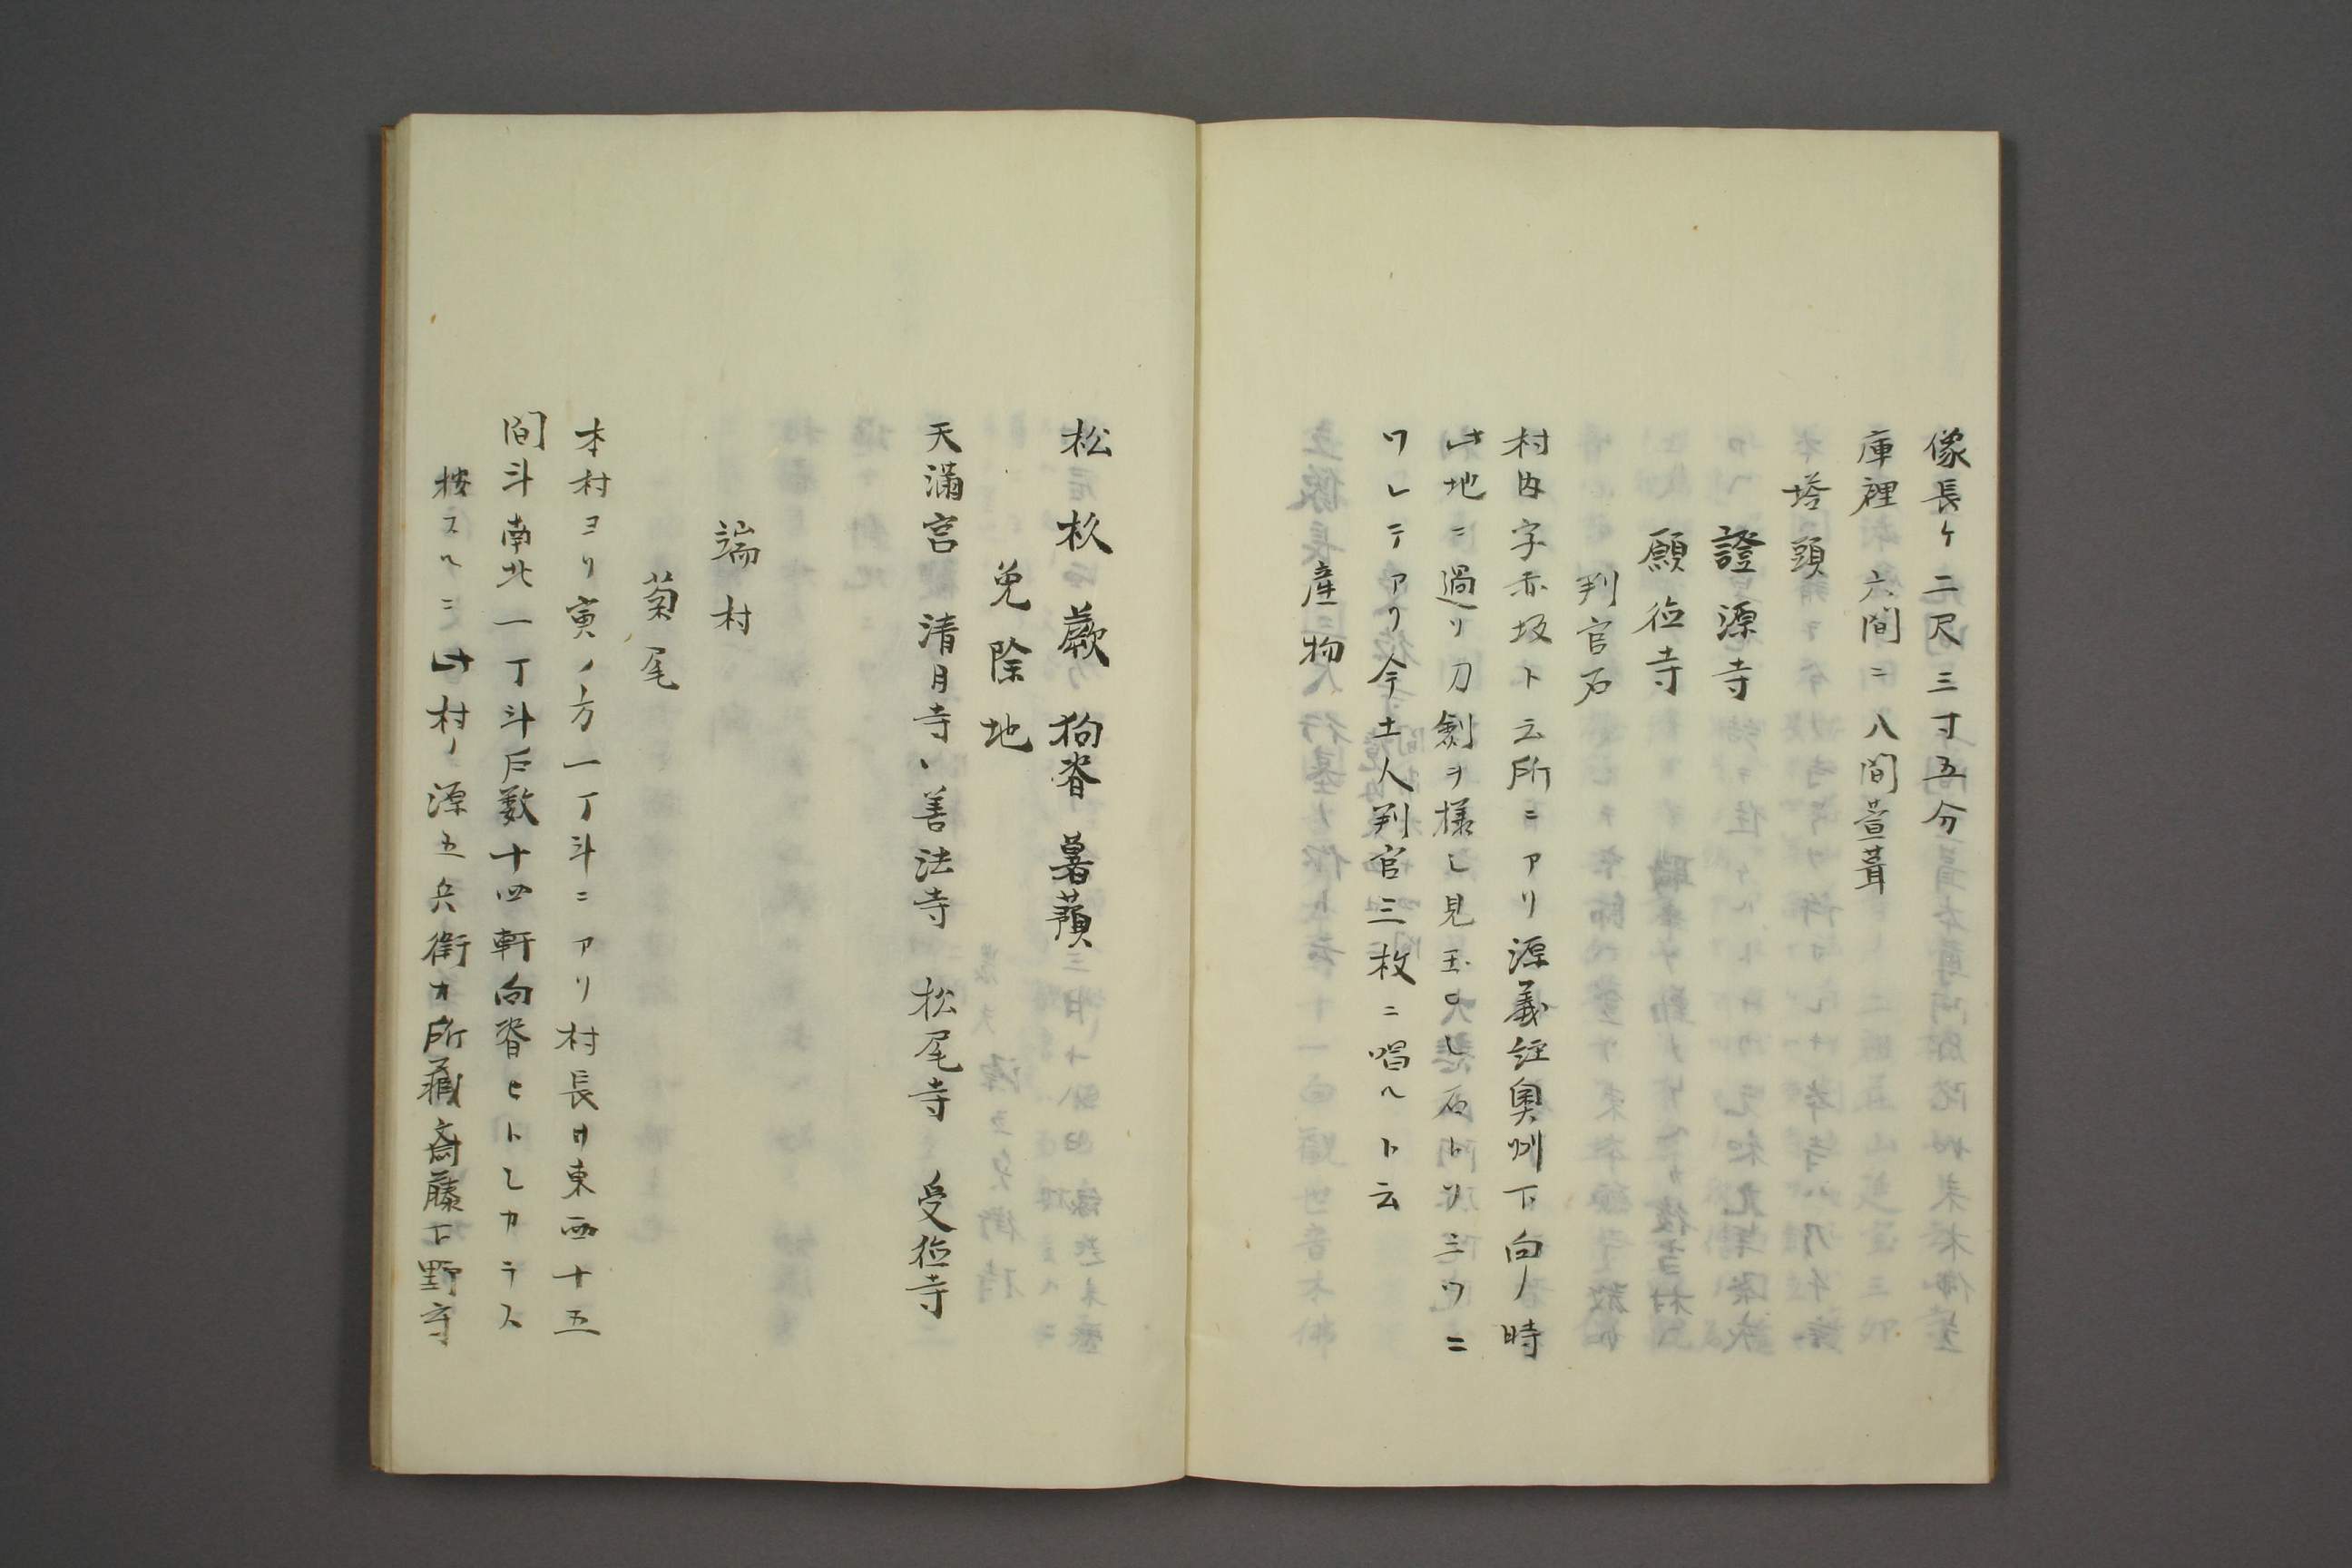 像長ケ二尺三寸五分
庫裡六間ニ八間萱葺
塔頭
證源寺
願徳寺
判官石
村内字赤坂ト云所ニアリ源義経奥州下向ノ時
此地ニ過リ刀劍ヲ様シ見玉ヒシ石トソ三ツニ
ワレテアリ今土人判官三枚ニ唱ヘト云
産物
松 杉 蕨 狗脊 薯蕷
免除地
天満宮 清月寺 善法寺 松尾寺 受徳寺
端村
菊尾
本村ヨリ寅ノ方一丁斗ニアリ村長サ東西十五
間斗南北一丁斗戸数十四軒向背ヒトシカラス
按スルニ此村ノ源五兵衛カ所蔵斎藤下野守